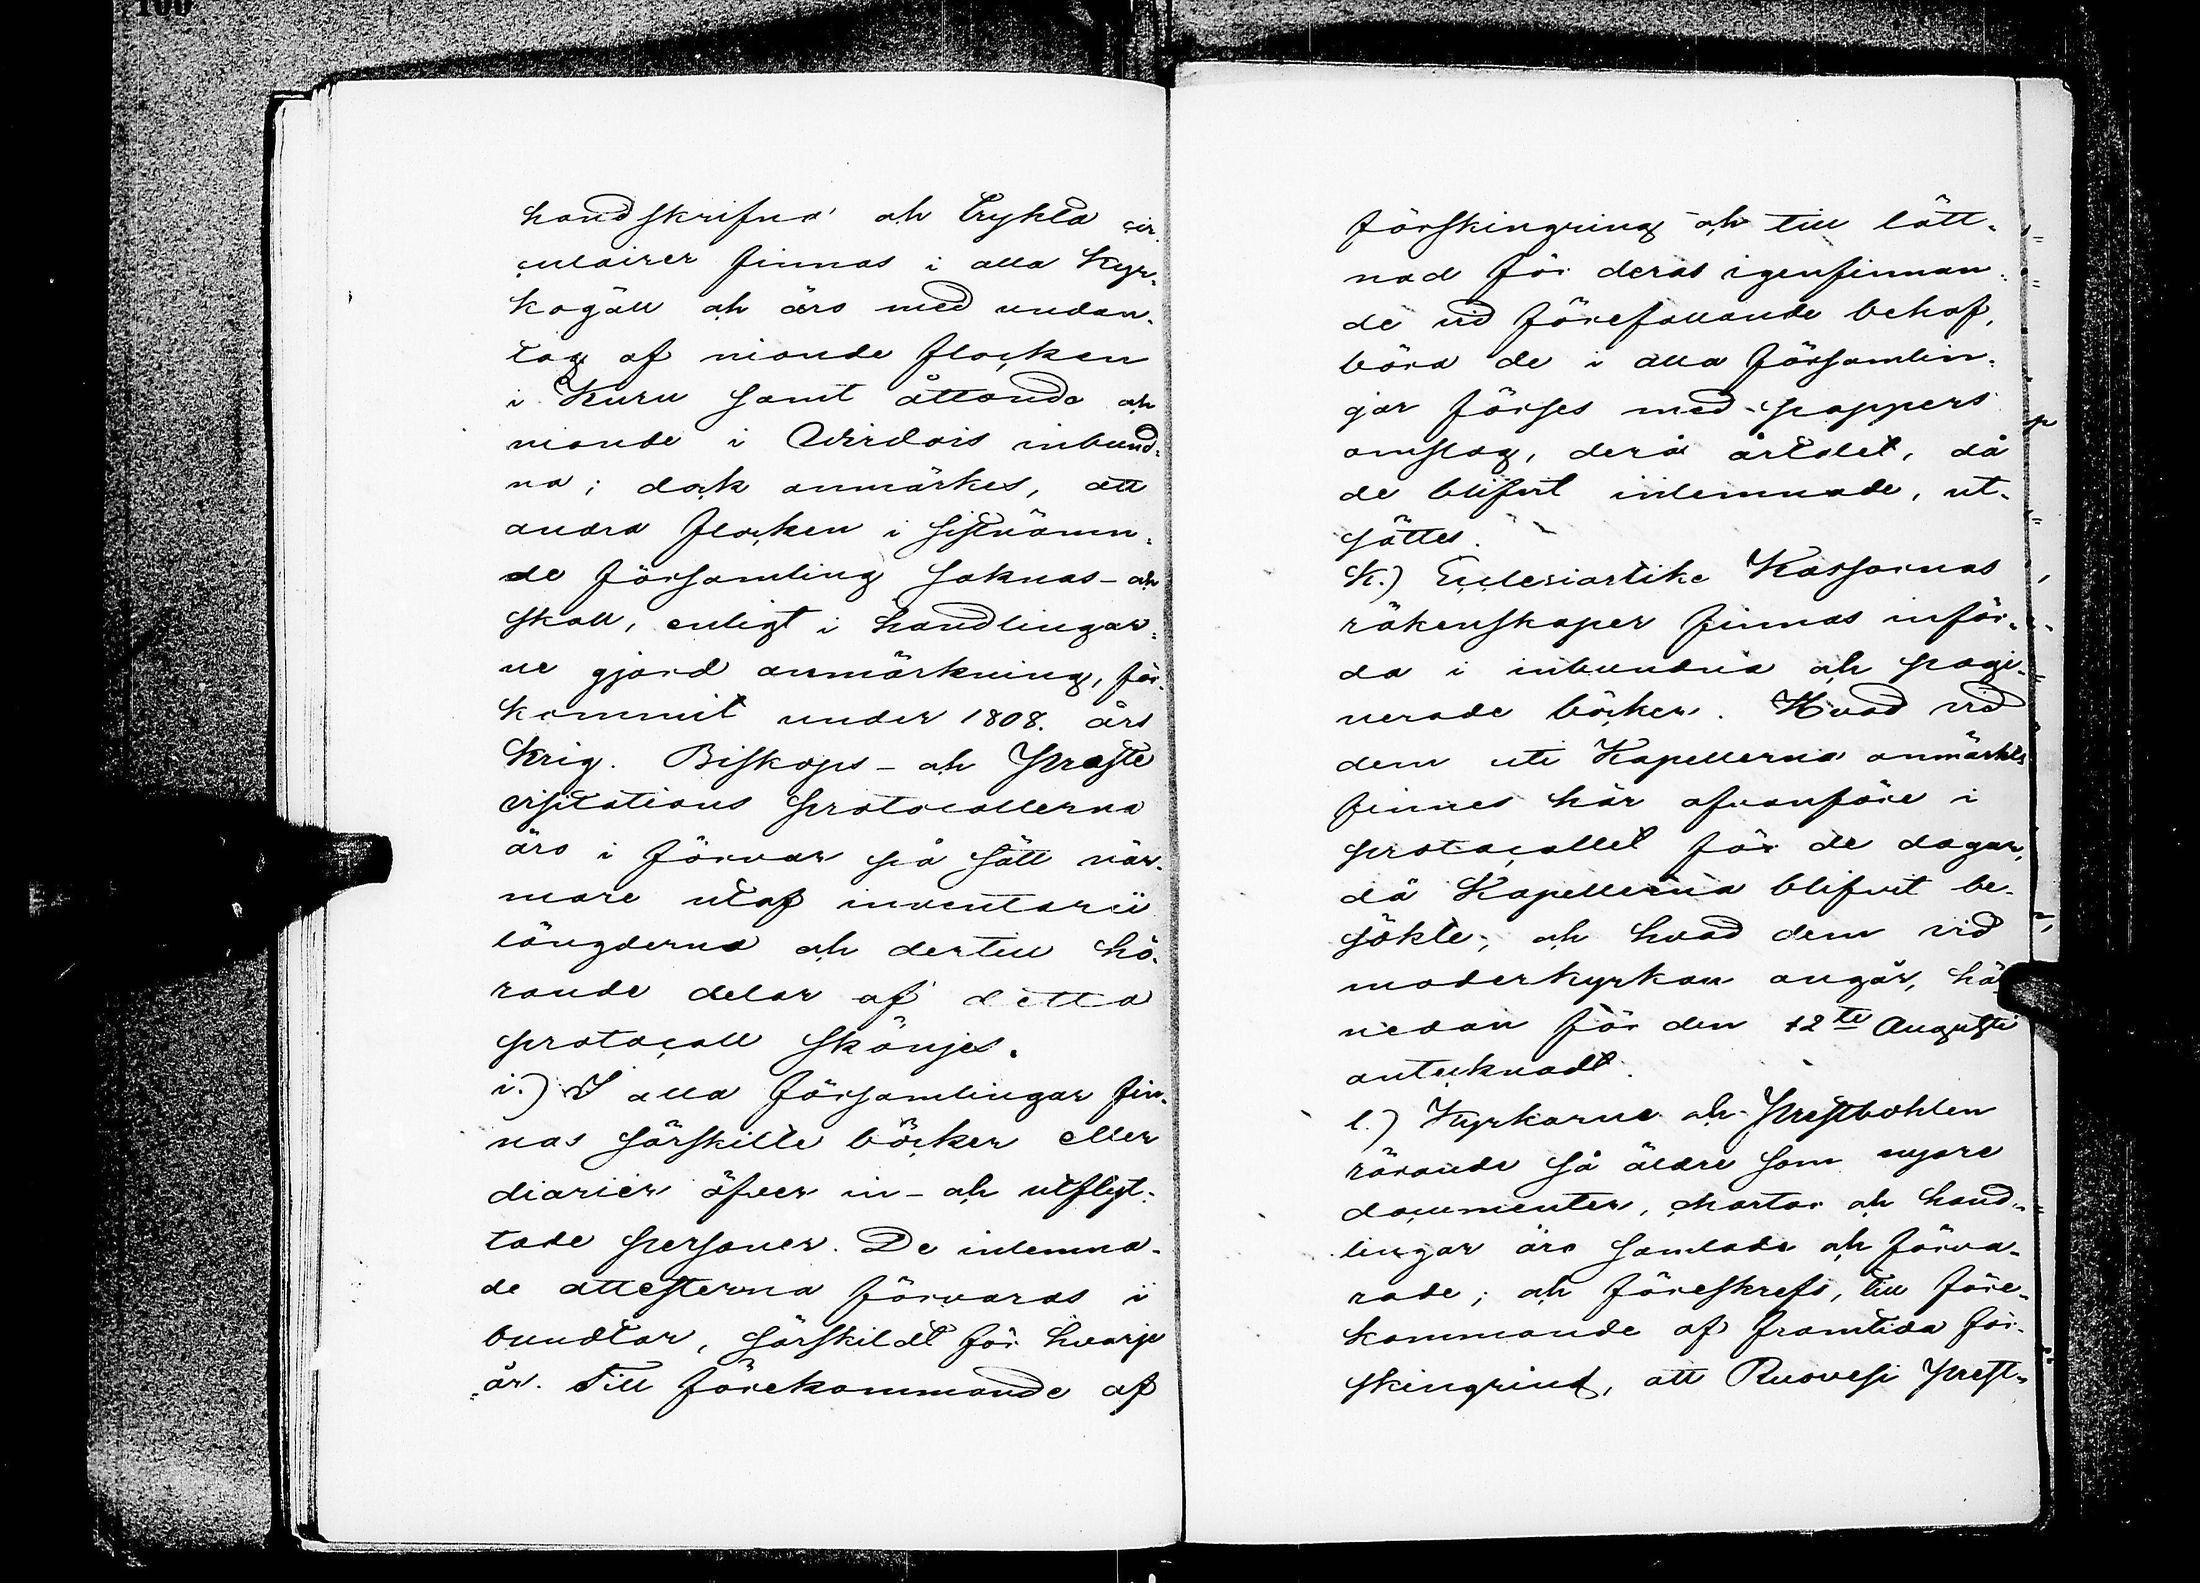 100
handskrifna och tryckta cir-
culairer finnas i alla Kyr-
kogäll och äro med undan-
tag af nionde flocken
i Kuru samt åttonde och
nionde i Wirdois inbund-
na; dock anmärkes, att
andra flocken i sistnämn-
de församling saknas - och
skall, enligt i handlingar-
ne gjord anmärkning, för-
kommit under 1808. års
Krig. Biskops- och Proste
visitations protocollerna
äro i förvar på sätt när-
mare utaf inventarii
längderna och dertill hö-
rande delar af detta
protocoll skönjes.
i.) I alla församlingar fin-
nas särskilte böcker eller
diarier öfver in- och utflyt-
tade personer. De inlemna-
de attesterna förvaras i
bundtar, särskildt för hvarje
år. Till förekommande af
förskingring och till lätt-
nad för deras igenfinnan-
de vid förefallande behof,
böra de i alla församlin-
gar förses med pappers
omslag, derå årtalet, då
de blifvit inlemnade, ut-
sättes.
K.) Ecclesiastike Kassornas
räkenskaper finnas inför-
da i inbundna och pagi-
nerade böcker. Hvad vid
dem uti Kapellerna anmärktes
finnes här ofvanföre i
protocollet för de dagar,
då Kapellerna blifvit be-
sökte; och hvad dem vid
moderkyrkan angår, här
nedan för den 12te Augusti
antecknadt.
l.) Kyrkorne och Prestbohlen
rörande så äldre som nyare
documenter, chartor och hand-
lingar äro samlade och förva-
rade; och föreskrefs, till före-
kommande af framtida för-
skingring, att Ruovesi Prest-